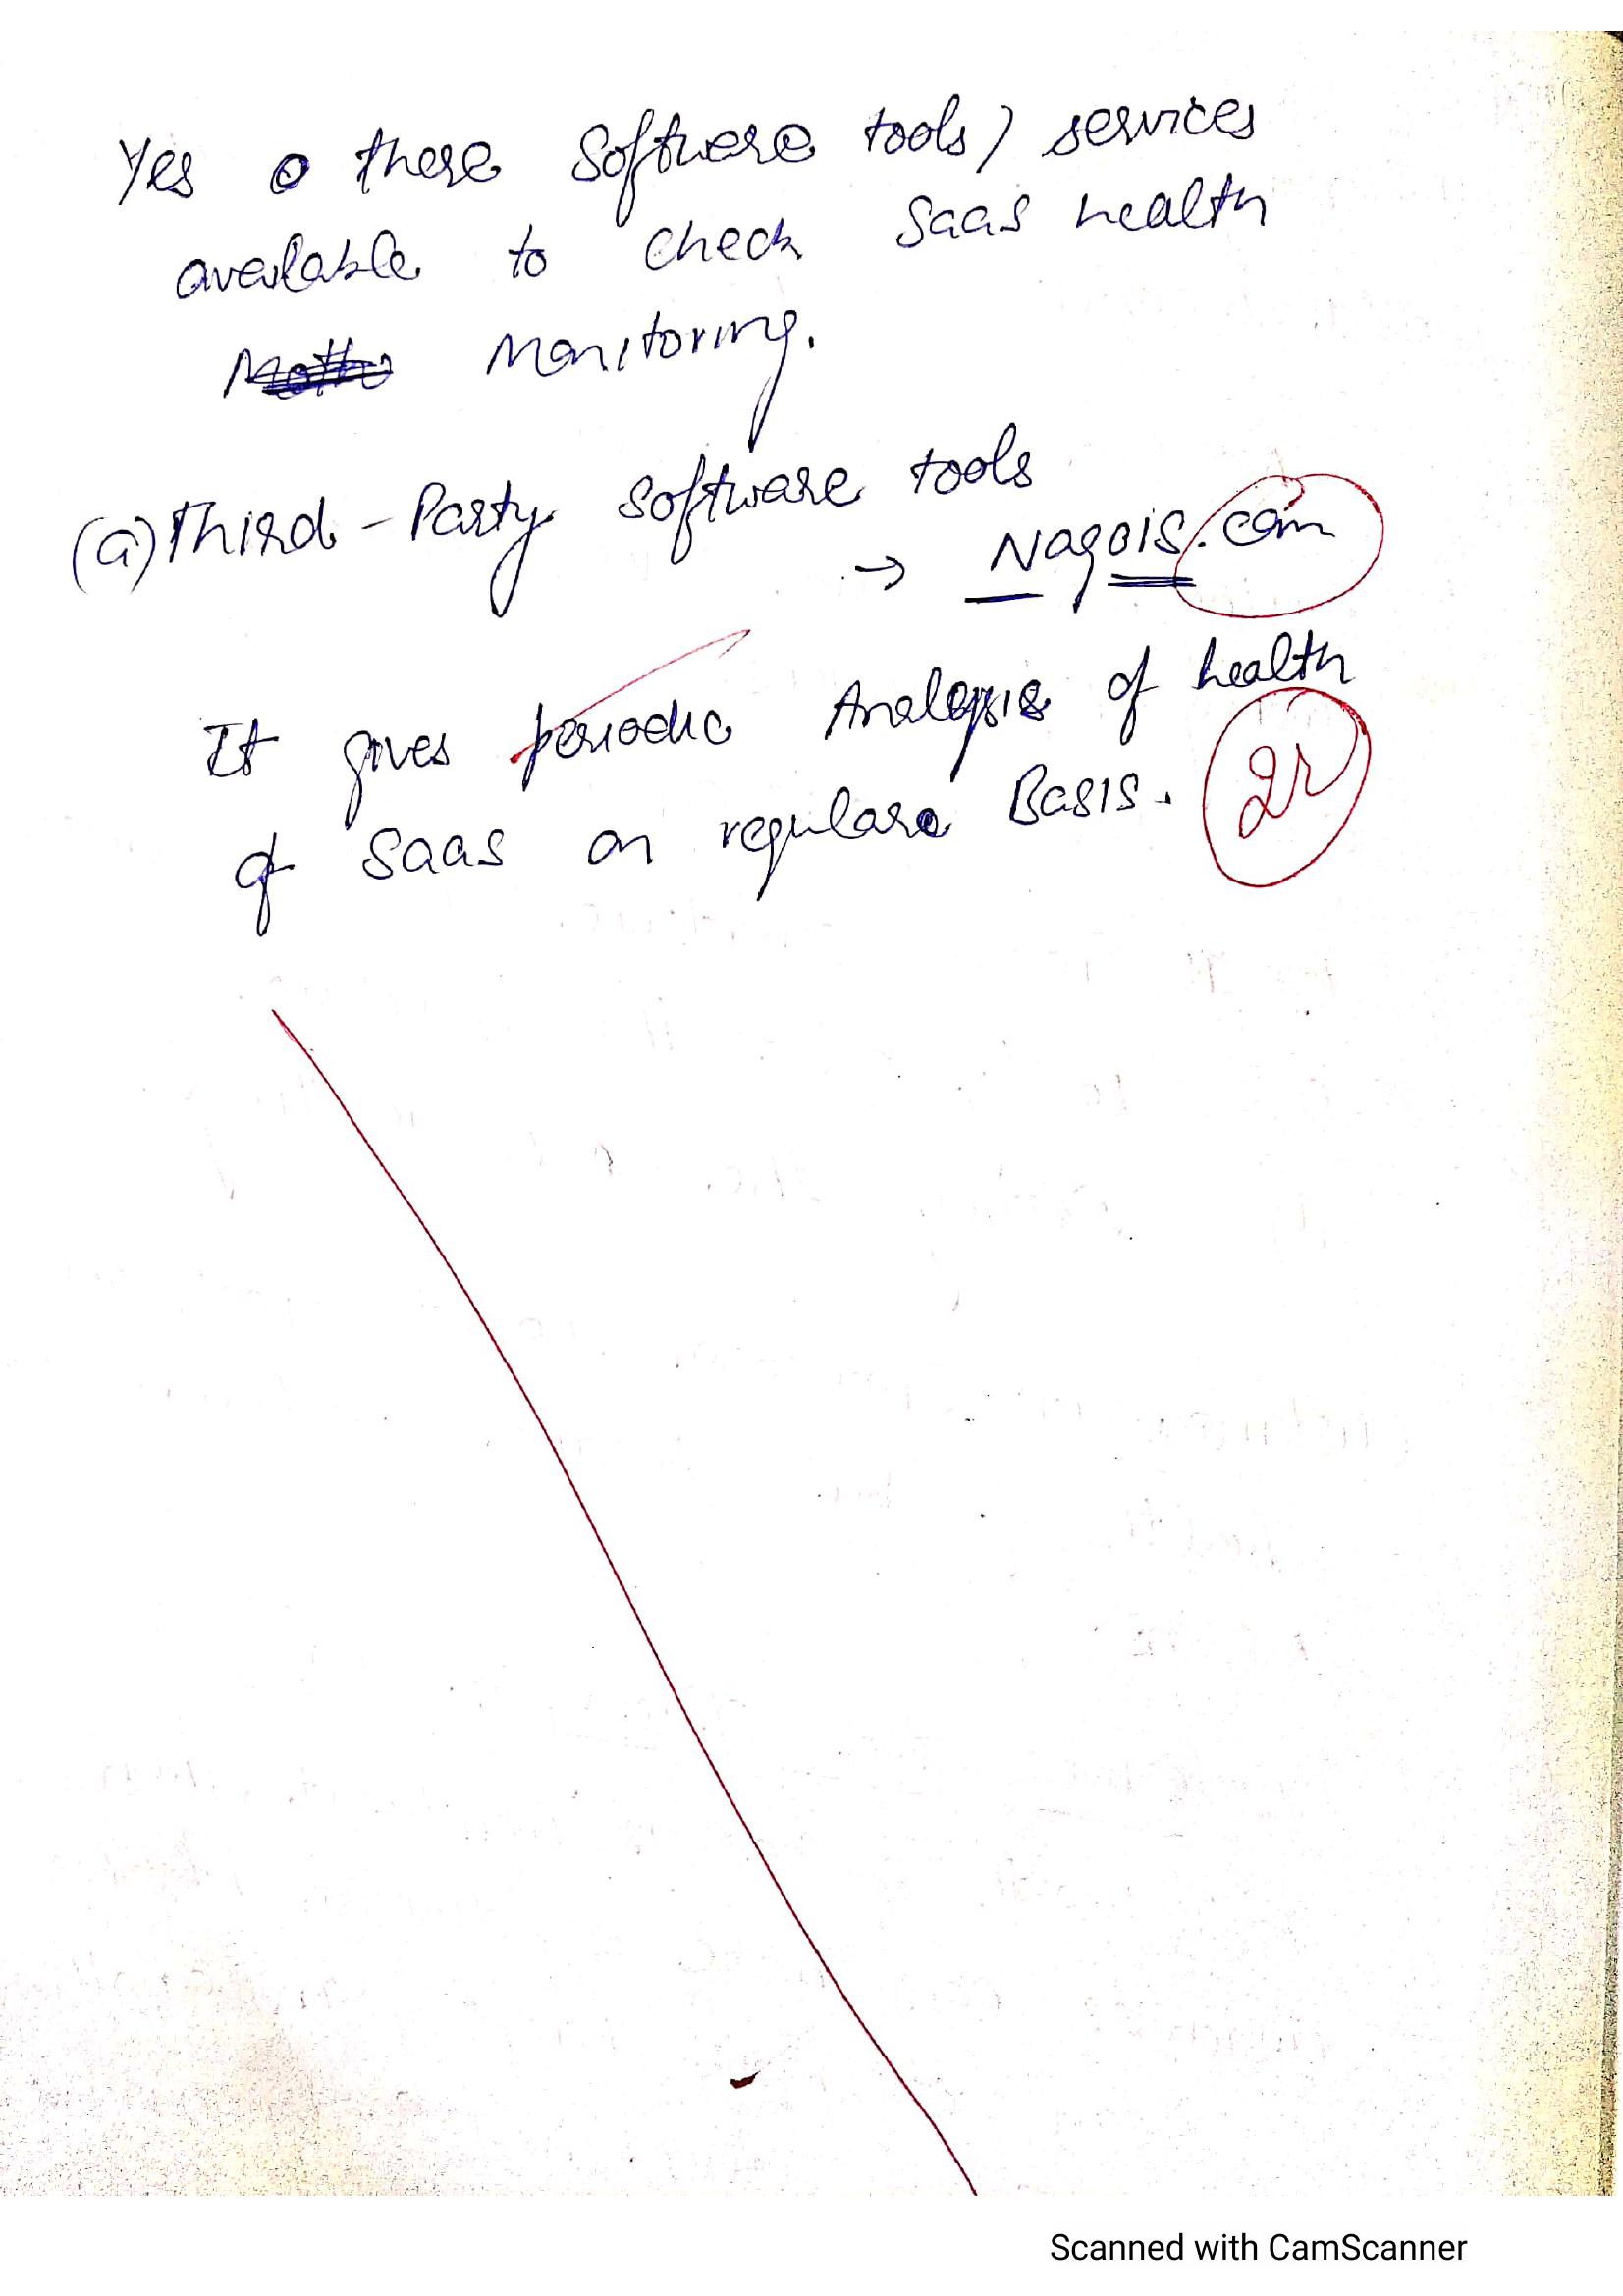 Yes there Software tools / services
available to check SaaS health
Monitoring.
(a) Third - Party software tools
→ Nagois.com
It gives periodic Analysis of health
of SaaS on regular Basis.
Scanned with CamScanner